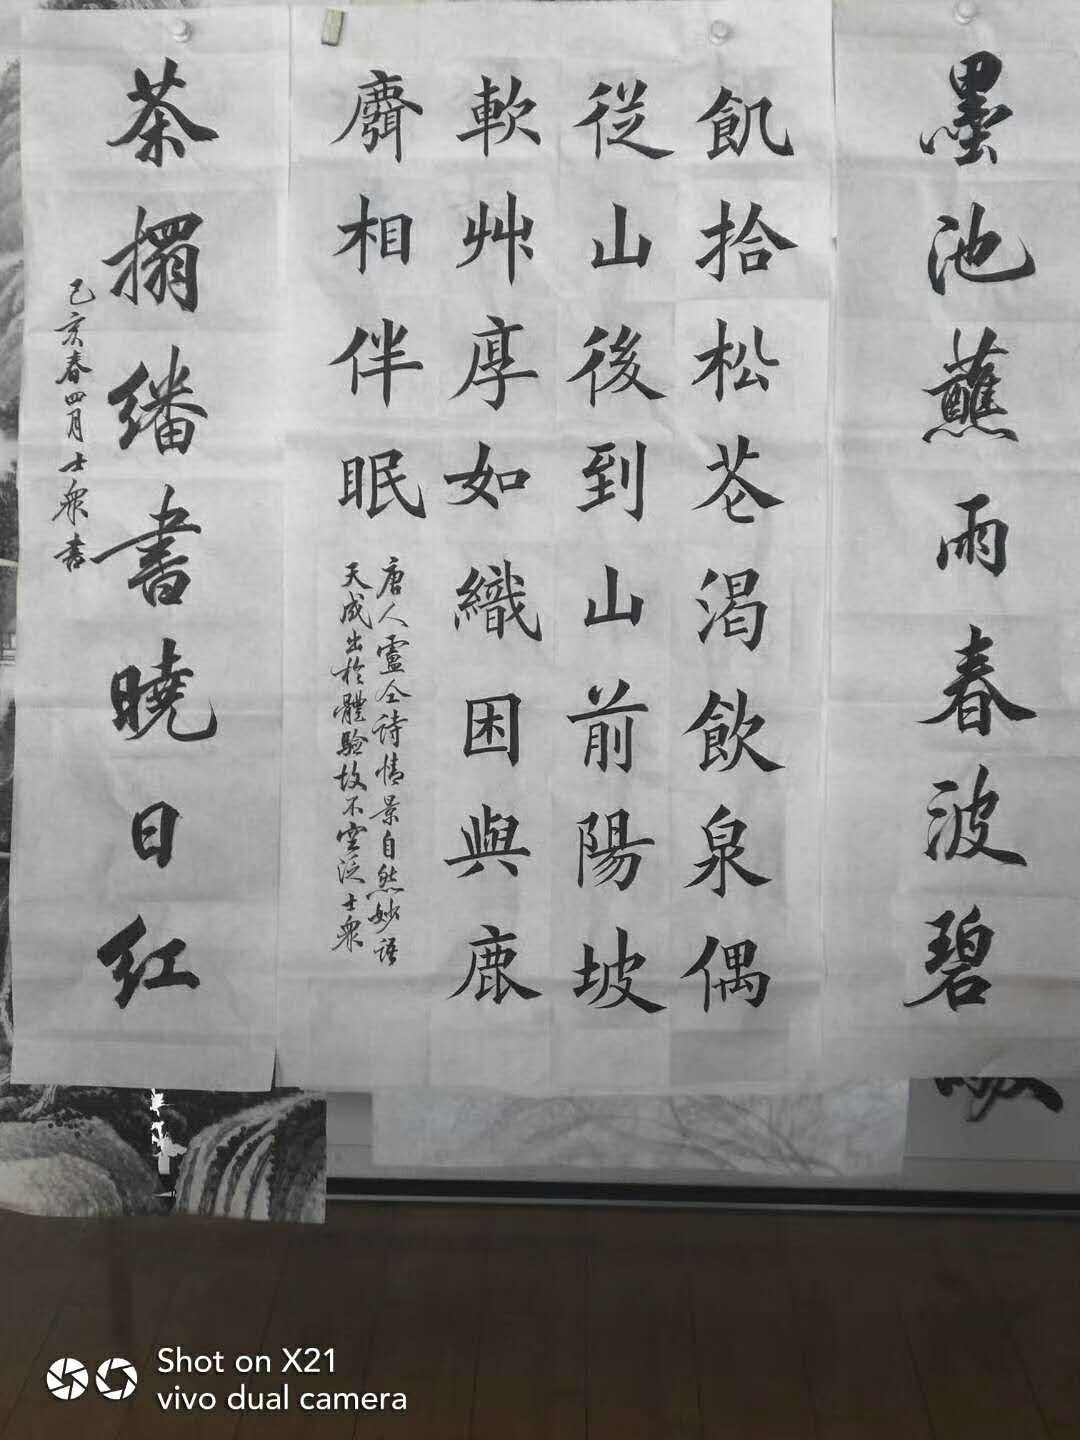 墨池蘸雨春波碧
飢拾松花渴飲泉偶
從山後到山前陽坡
軟艸厚如織困與鹿
麛相伴眠
唐人盧仝詩情景自然妙語
天成出於體驗故不空泛士衆
茶搨繙書曉日红
己亥春四月士衆书
Shot on X21
vivo dual camera